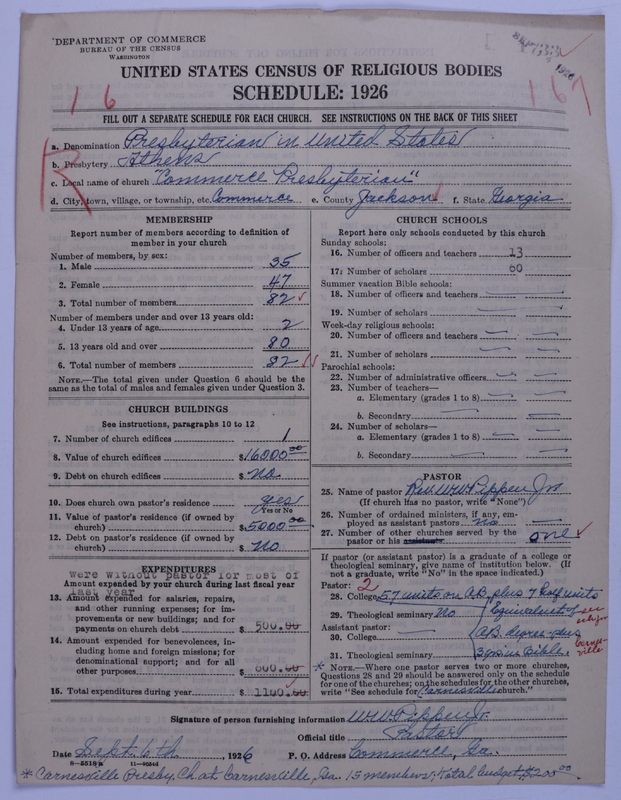 DEPARTMENT OF COMMERCE
BUREAU OF THE CENSUS
WASHINGTON
1926
UNITED STATES CENSUS OF RELIGIOUS BODIES
SCHEDULE: 1926
1 6
167
FILL OUT A SEPARATE SCHEDULE FOR EACH CHURCH. SEE INSTRUCTIONS ON THE BACK OF THIS SHEET
R
a. Denomination Presbyterian in United States
b. Presbytery Athens
c. Local name of church "Commerce Presbyterian"
d. City, town, village, or township, etc. Commerce e. County Jackson f. State Georgia
MEMBERSHIP
Report number of members according to definition of
member in your church
Number of members, by sex:
1. Male 35
2. Female 47
3. Total number of members 82
Number of members under and over 13 years old:
4. Under 13 years of age 2
5. 13 years old and over 80
6. Total number of members 82
NOTE.—The total given under Question 6 should be the
same as the total of males and females given under Question 3.
CHURCH BUILDINGS
See instructions, paragraphs 10 to 12
7. Number of church edifices 1
8. Value of church edifices $16000.00
9. Debt on church edifices $ no
10. Does church own pastor's residence yes
Yes or No
11. Value of pastor's residence (if owned by
church) $5000.00
12. Debt on pastor's residence (if owned by
church) $ no
EXPENDITURES
Were without pastor for most of
Amount expended by your church during last fiscal year
last year
13. Amount expended for salaries, repairs,
and other running expenses; for im-
provements or new buildings; and for
payments on church debt $ 500.00
14. Amount expended for benevolences, in-
cluding home and foreign missions; for
denominational support; and for all
other purposes $ 600.00
15. Total expenditures during year $ 1100.00
CHURCH SCHOOLS
Report here only schools conducted by this church
Sunday schools:
16. Number of officers and teachers 13
17. Number of scholars 60
Summer vacation Bible schools:
18. Number of officers and teachers
19. Number of scholars
Week-day religious schools:
20. Number of officers and teachers
21. Number of scholars
Parochial schools:
22. Number of administrative officers
23. Number of teachers—
a. Elementary (grades 1 to 8)
b. Secondary
24. Number of scholars—
a. Elementary (grades 1 to 8)
b. Secondary
PASTOR
25. Name of pastor Rev. W.W. Pippen Jr
(If church has no pastor, write "None")
26. Number of ordained ministers, if any, em-
ployed as assistant pastors no
27. Number of other churches served by the
pastor or his assistants one
If pastor (or assistant pastor) is a graduate of a college or
theological seminary, give name of institution below. (If
not a graduate, write "No" in the space indicated.)
Pastor: 2
28. College 57 units on A.B. plus 7 half units
29. Theological seminary No Equivalent of
Assistant pastor:
30. College A.B. degree plus
31. Theological seminary Bible.
* NOTE.—Where one pastor serves two or more churches,
Questions 28 and 29 should be answered only on the schedule
for one of the churches; on the schedules for the other churches,
write "See schedule for Carnesville church."
Signature of person furnishing information W.W. Pippen Jr.
Official title Pastor
Date Sept. 6th, 1926 P. O. Address Commerce, Ga.
8—5518a 11—9944
* Carnesville Presby. Ch at Carnesville, Ga. 15 members, total budget $200.00